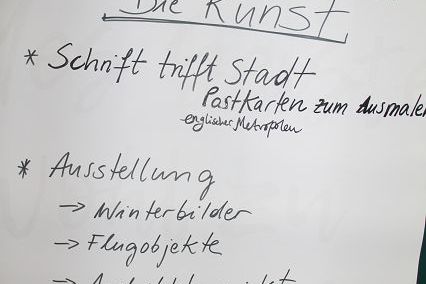 Die Kunst
* Schrift trifft Stadt
Postkarten zum Ausmalen
englischer Metropolen
* Ausstellung
→ Winterbilder
→ Flugobjekte
→